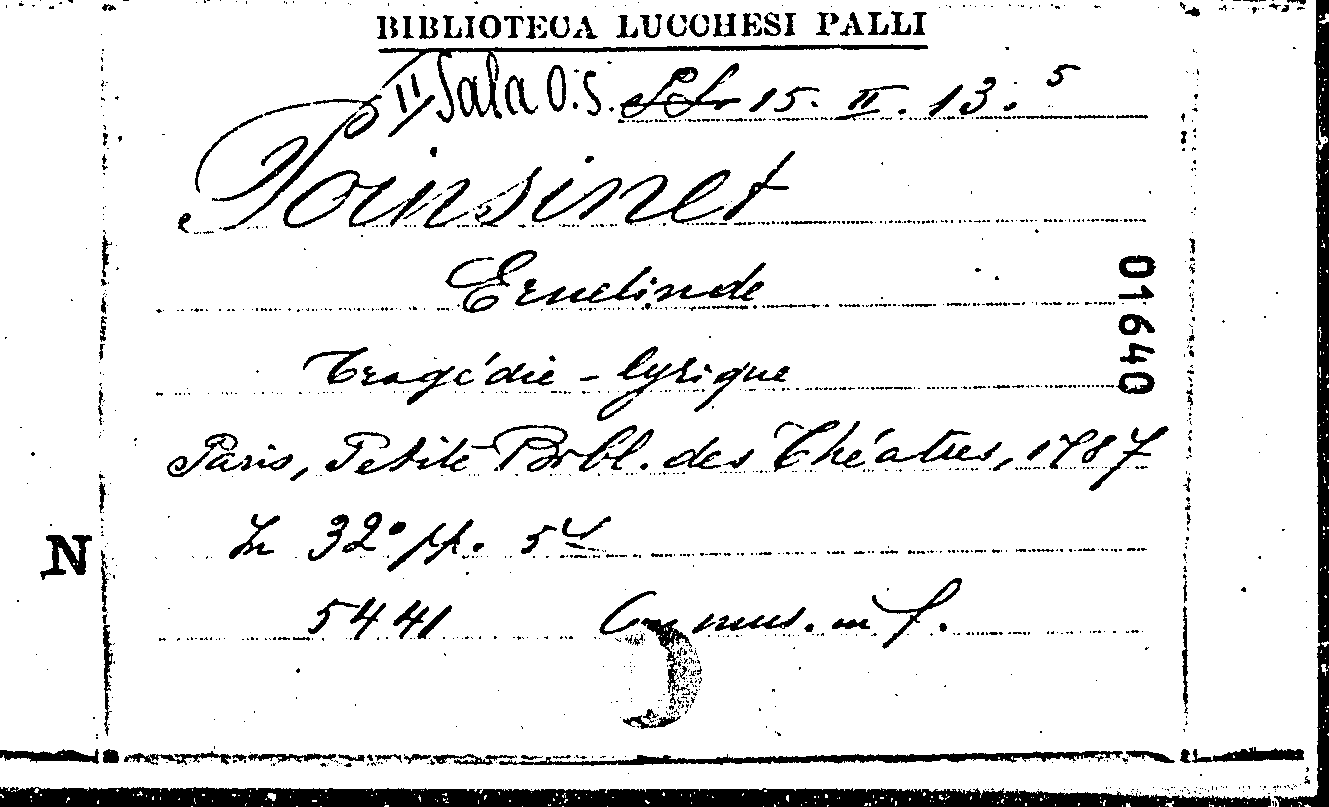 BIBLIOTECA LUCCHESI PALLI
II Sala O.S. 15. II. 13. 5
Poinsinet
Ernelinde
Tragédie - lyrique
Paris, Petite Bibl. des Théatres, 1787
In 32° pp.
5441 mus. in f.
N
01640